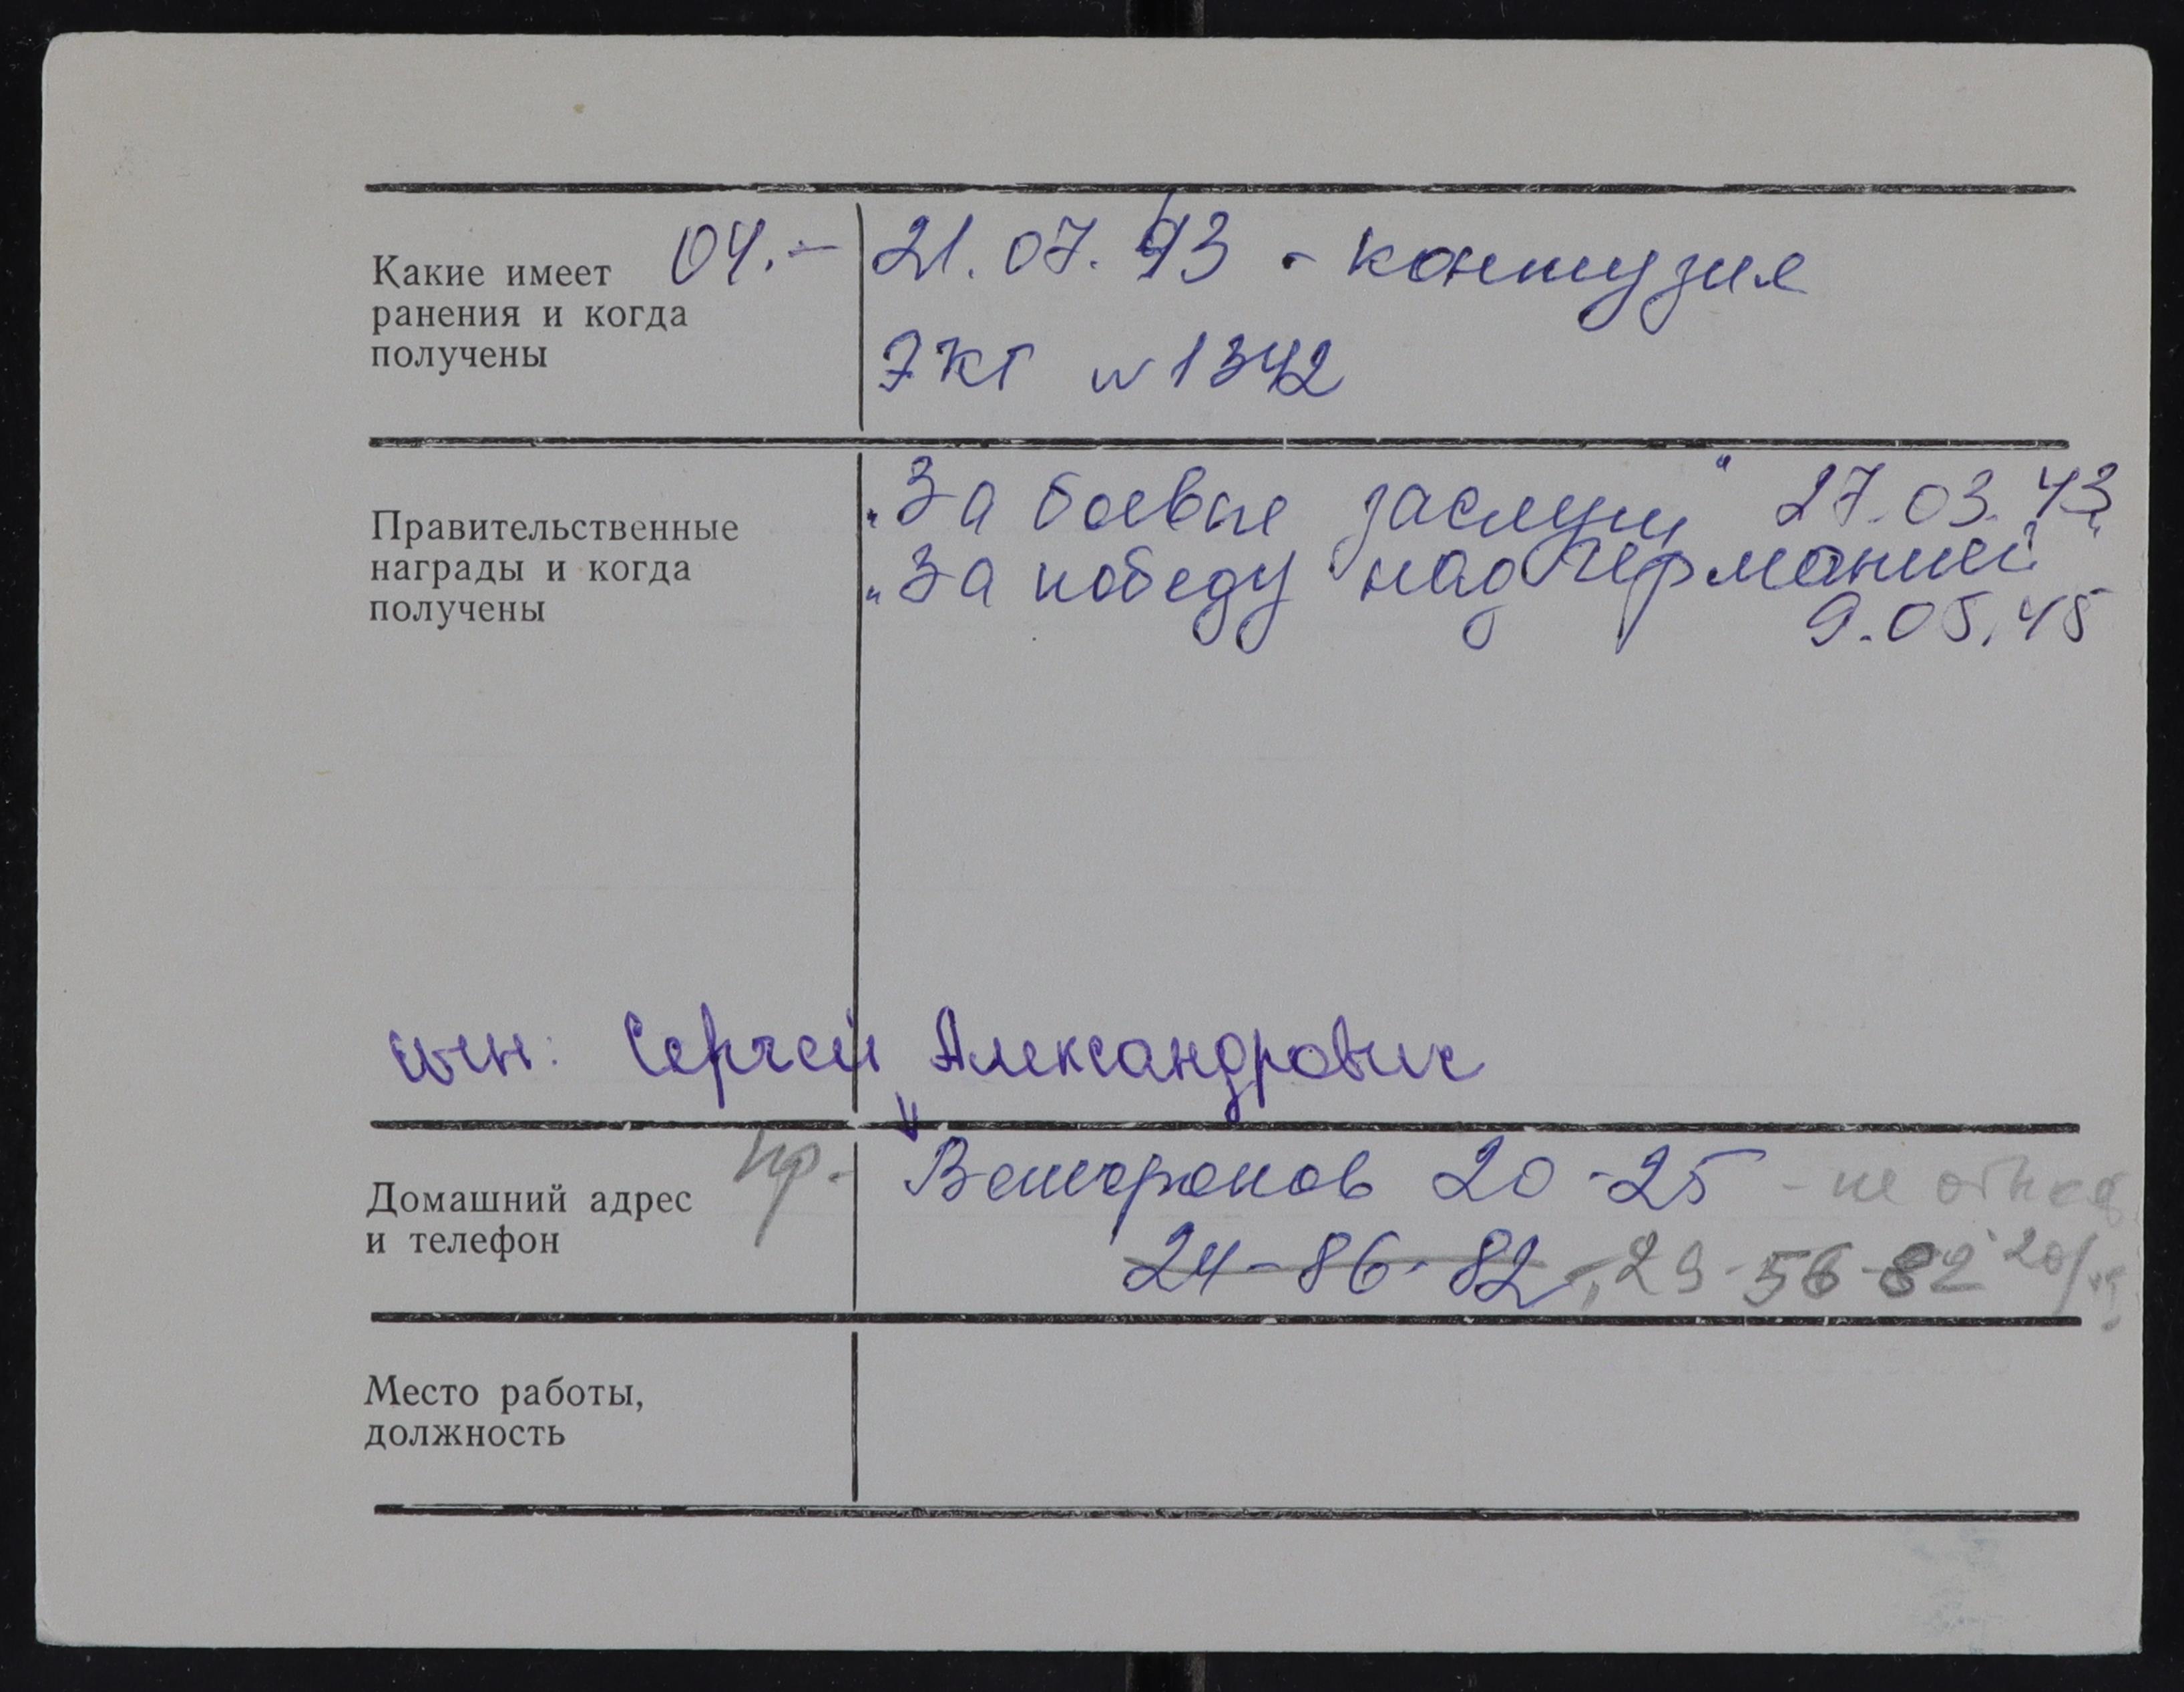 Какие имеет 04.- 21.07.43 - контузия
ранения и когда
получены ЭКГ N 1342
Правительственные „За боевые заслуги" 27.03.43
награды и когда „За победу над Германией"
получены 9.05.45
сын: Сергей Александрович
Домашний адрес пр. Ветеранов 20-25 - не
и телефон 24-86-82, 29-56-82
Место работы,
должность